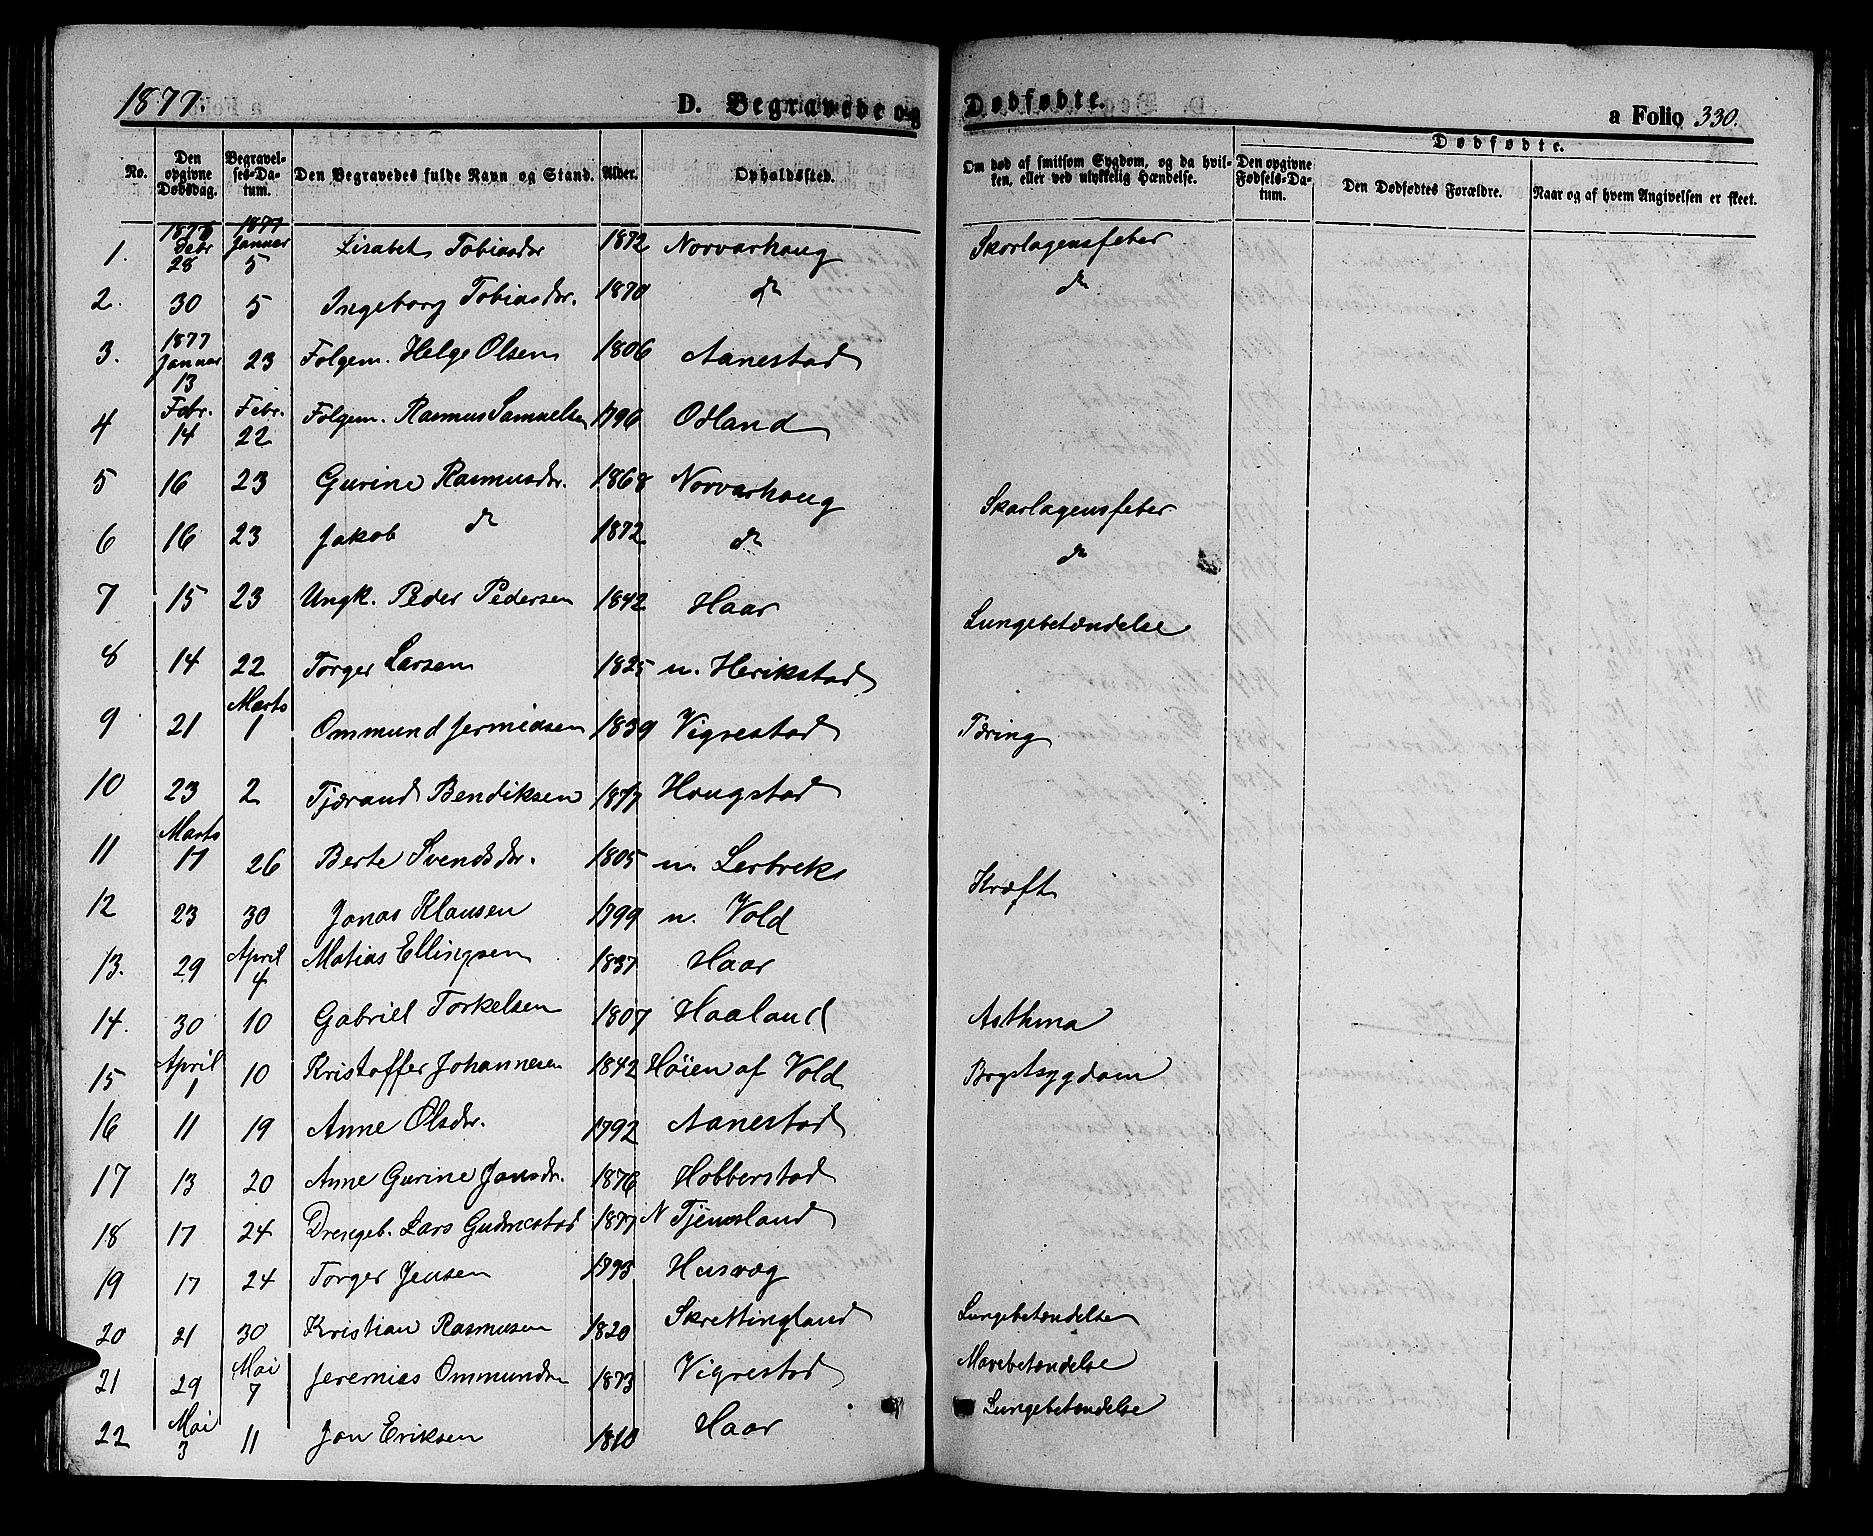 1877.
D. Begravede og Dødfødte.
a Folio 330.
No. | Den opgivne Dødsdag. | Begravelses-Datum. | Den Begravedes fulde Navn og Stand. | Alder. | Opholdssted. | Om død af smitsom Sygdom, og da hvilken, eller ved ulykkelig Hændelse. | Dødfødte. | Den opgivne Fødsels-Datum. | Den Dødfødtes Forældre. | Naar og af hvem Angivelsen er skeet.
1. | 1876 28 | 1877 Januar 5 | Lisabet Tobiasdr | 1872 | Norvarhoug | Skarlagensfeber
2. | 30 | 5 | Ingeborg Tobiasdr. | 1870 | do | do
3. | 1877 Januar 13 | 23 | Folgem. Helge Olsen | 1806 | Aanestad
4 | Febr. 14 | Febr. 22 | Folgem. Rasmus Samuelsen | 1796 | Odland
5 | 16 | 23 | Gurine Rasmusdr. | 1868 | Norvarhoug | Skarlagensfeber
6 | 16 | 23 | Jakob do | 1872 | do | do
7 | 15 | 23 | Ungk. Peder Pedersen | 1842 | Haar | Lungebetændelse
8 | 14 | 22 | Torger Larsen | 1825 | n. Herikstad
9 | 21 | Marts 1 | Ommund Jermiasen | 1839 | Vigrestad | Tæring
10 | 23 | 2 | Tjærand Bendiksen | 1877 | Hougstad
11 | Marts 17 | 26 | Berte Svendsdr. | 1805 | n. Lerbrek | Kræft
12 | 23 | 30 | Jonas Klausen | 1799 | n. Vold
13. | 29 | April 4 | Matias Ellingsen | 1837 | Haar
14. | 30 | 10 | Gabriel Torkelsen | 1807 | Haaland | Asthma
15 | April 1 | 10 | Kristoffer Johannesen | 1842 | Høien af Vold | Brystsygdom
16 | 11 | 19 | Anne Olsdr. | 1792 | Aanestad
17 | 13 | 20 | Anne Gurine Jansdr. | 1876 | Hobberstad
18 | 17 | 24 | Drengeb. Lars Gudmestad | 1877 | N Tjemsland
19 | 17 | 24 | Torger Jensen | 1795 | Husvæg
20 | 21 | 30 | Kristian Rasmusen | 1820 | Skrettingland | Lungebetændelse
21 | 29 | Mai 7 | Jeremias Ommundsn | 1873 | Vigrestad | Mavebetændelse
22 | Mai 3 | 11 | Jon Eriksen | 1810 | Haar | Lungebetændelse